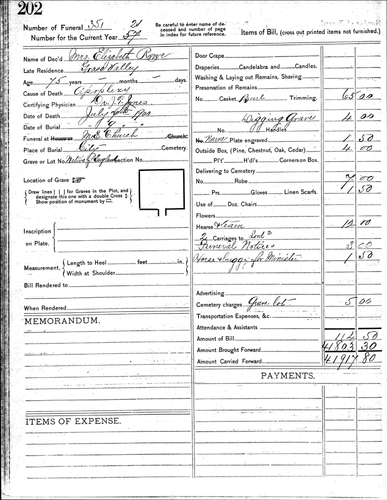 202
Number of Funeral 351
Number for the Current Year 57
Be careful to enter name of deceased and number of page in index for future reference.
Items of Bill, (cross out printed items not furnished.)
Name of Dec'd Mrs Elizabeth Rowe
Late Residence Grass Valley
Age 75 years - months - days.
Cause of Death Apoplexy
Certifying Physician Dr. Jones
Date of Death July
Date of Burial
Funeral at Houses M.E. Church Church:
Place of Burial City Cemetery.
Grave or Lot No. Section No.
Location of Grave
Draw lines for Graves in the Plot, and designate this one with a double Cross
Show position of monument by
Inscription on Plate.
Measurement. Length to Heel feet in.
Width at Shoulder
Bill Rendered to
When Rendered
MEMORANDUM.
ITEMS OF EXPENSE.
Door Crape
Draperies, Candelabra and Candles.
Washing & Laying out Remains, Shaving
Preservation of Remains
No. Casket Trimming, 65 00
Digging Grave 4 00
No. Handles
No. Name Plate engraved 1 50
Outside Box, (Pine, Chestnut, Oak, Cedar) 4 00
P'l'y H'd'l's Corners on Box.
Delivering to Cemetery
No. Robe 7 00
Prs. Gloves Linen Scarfs. 1 50
Use of Doz. Chairs
Flowers
Hearse &Team 12 00
2 Carriages to
Funeral Notices 3 00
Horse & Buggy for Minister 1 50
Advertising
Cemetery charges Grave lot 5 00
Transportation Expenses, &c.
Attendance & Assistants
Amount of Bill 114 50
Amount Brought Forward 41803 30
Amount Carried Forward 41917 80
PAYMENTS.